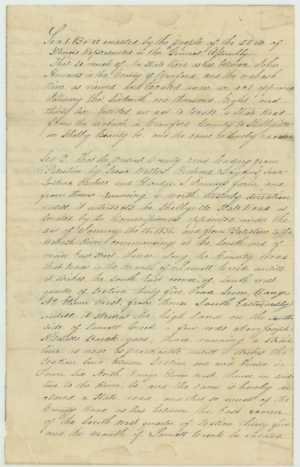 Sec. 1. Be it enacted by the people of the State of
Illinois Represented in the General Assembly
That so much of the State Road as lies between John
in the County of Crawford, and the Wabash
River as viewed and located under an act approved
January the sixteenth one thousand eight and
thirty six Entitled an act to locate a State Road
from the Wabash in Crawford County to Shelbyville
in Shelby County be and the same is hereby vacated
Sec. 2. That the present County road leading from
Palestine by Isaac
and
farm, and
from thence running a north westerly direction
until it intersects the Shelbyville State Road as
located by the Commissioners appointed under the
act of January the 16. 1836. and from Palestine to the
Wabash River commencing at the South end of
main East Street, thence along the County Road
that leads to the mouth of Lamott Creek until
it strikes the South East corner of South west
quarter of Section thirty five Town Seven Range
No. Eleven West, from thence South Eastwardly
until it strikes the high land on the South
side of Lamott Creek a few rods above Joseph
yard, thence running a strait
line as near as practicable until it strikes the
Section line between Section one and twelve in
Town Six North Range Eleven west thence on said
line to the River, be and the same is hereby de-
clared a State road and that so much of the
County Road as lies between the East corner
of the South west quarter of Section thirty five
and the mouth of Lamott Creek be vacated